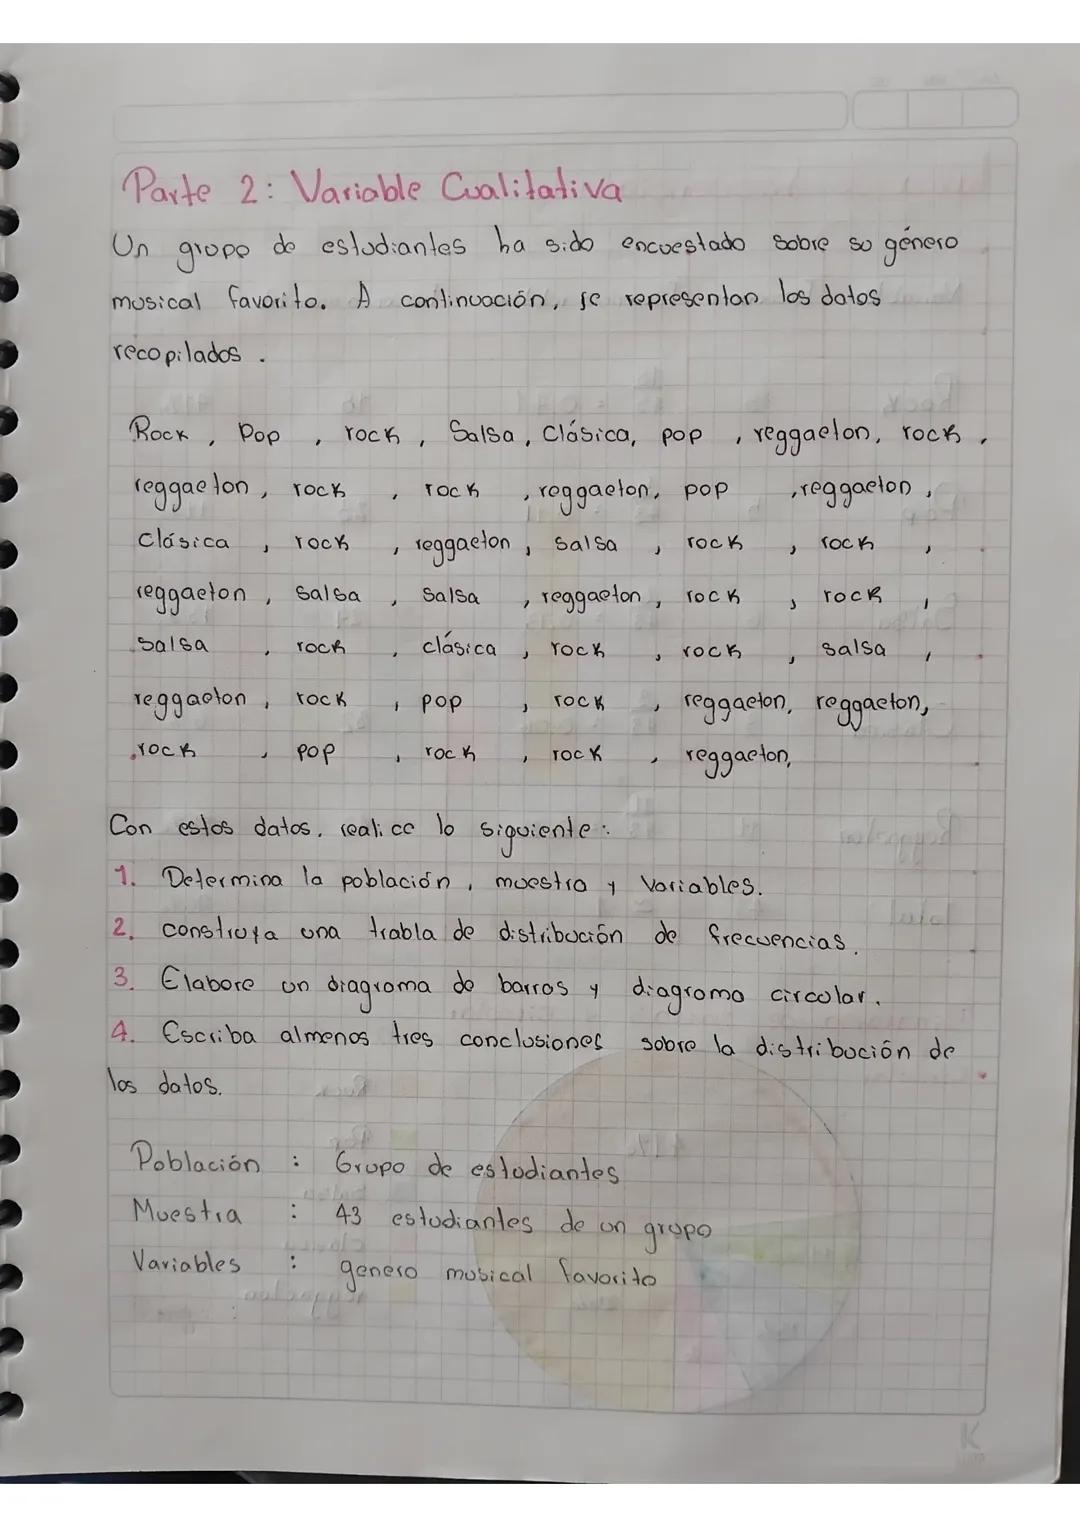 Parte 2: Variable Cualitativa
Un grupo de estudiantes ha sido encuestado sobre su género
musical favorito. A continuación, se representan los datos
recopilados.
Rock, Pop, rock, Salsa, Clásica, pop, reggaeton, rock,
reggaeton, rock, rock, reggaeton, pop, reggaeton,
Clásica, rock, reggaeton, salsa, rock, rock,
reggaeton, salsa, salsa, reggaeton, rock, rock,
salsa, rock, clásica, rock, rock, salsa,
reggaeton, rock, pop, rock, reggaeton, reggaeton,
rock, pop, rock, rock, reggaeton,
Con estos datos, realice lo siguiente:
1. Determina la población, muestra y Variables.
2. construya una trabla de distribución de frecuencias.
3. Elabore un diagrama de barras y diagrama circular.
4. Escriba almenos tres conclusiones sobre la distribución de
los datos.
Población : Grupo de estudiantes
Muestra : 43 estudiantes de un grupo
Variables : genero musical favorito
K